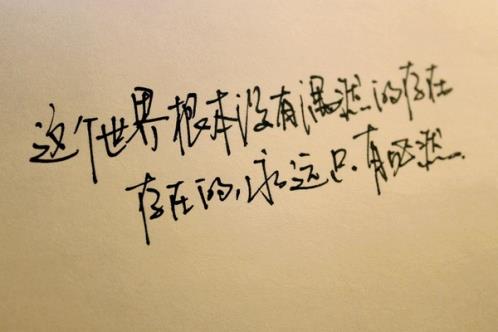 这个世界根本没有偶然的存在
存在的,永远只有必然